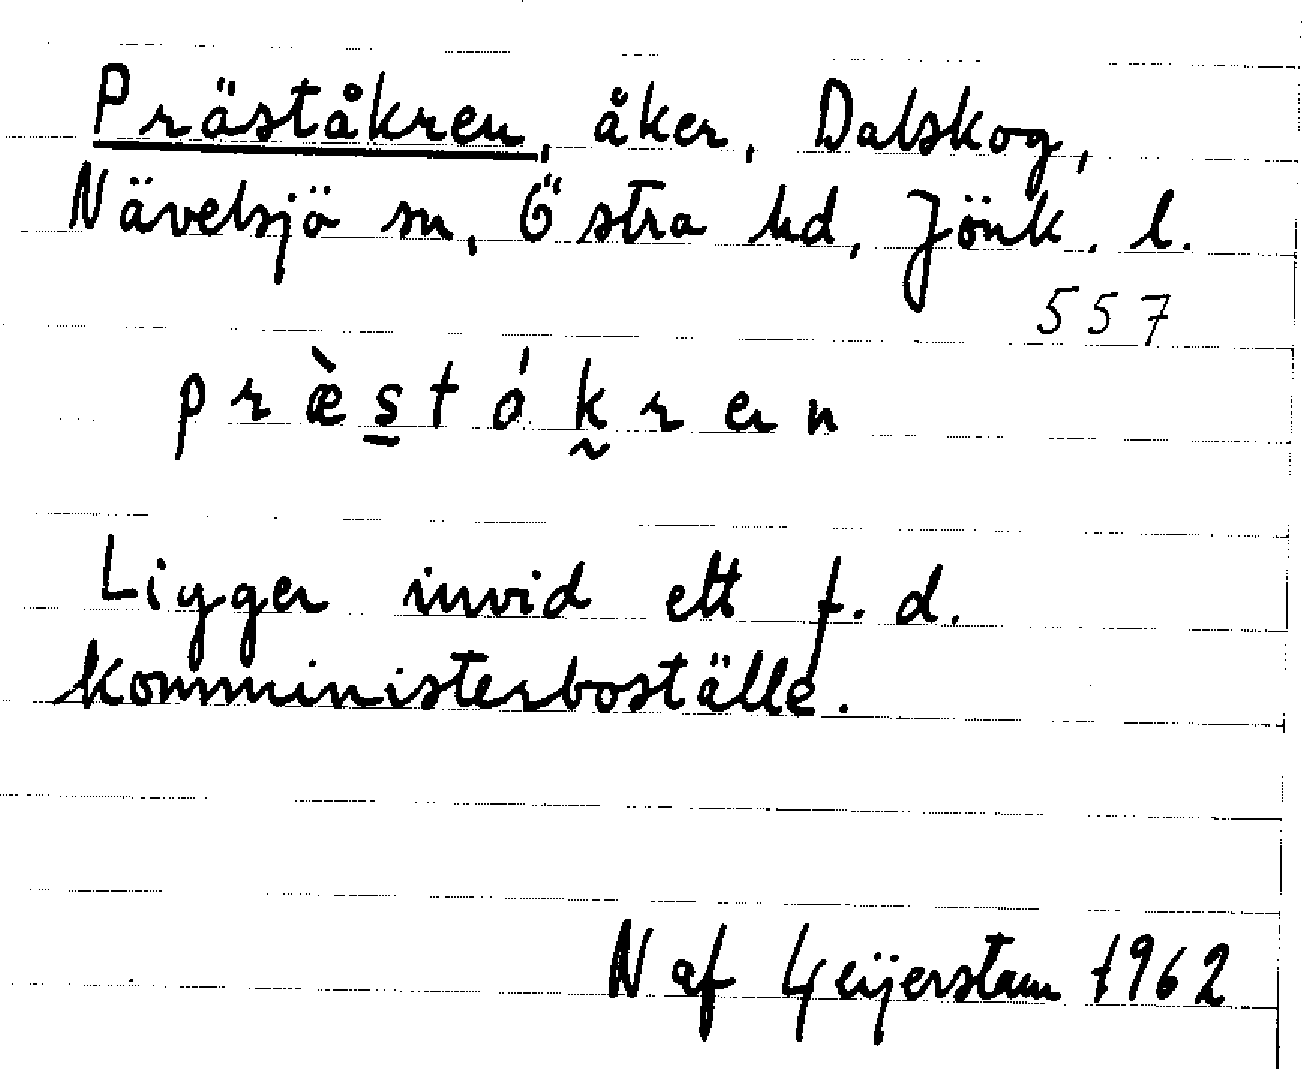 Präståkren, åker, Dalskog,
Nävelsjö sn, Östra hd, Jönk. l.
557
præ̀s̲tók̰ren
Ligger invid ett f.d.
komministerboställe.
N af Geijerstam 1962